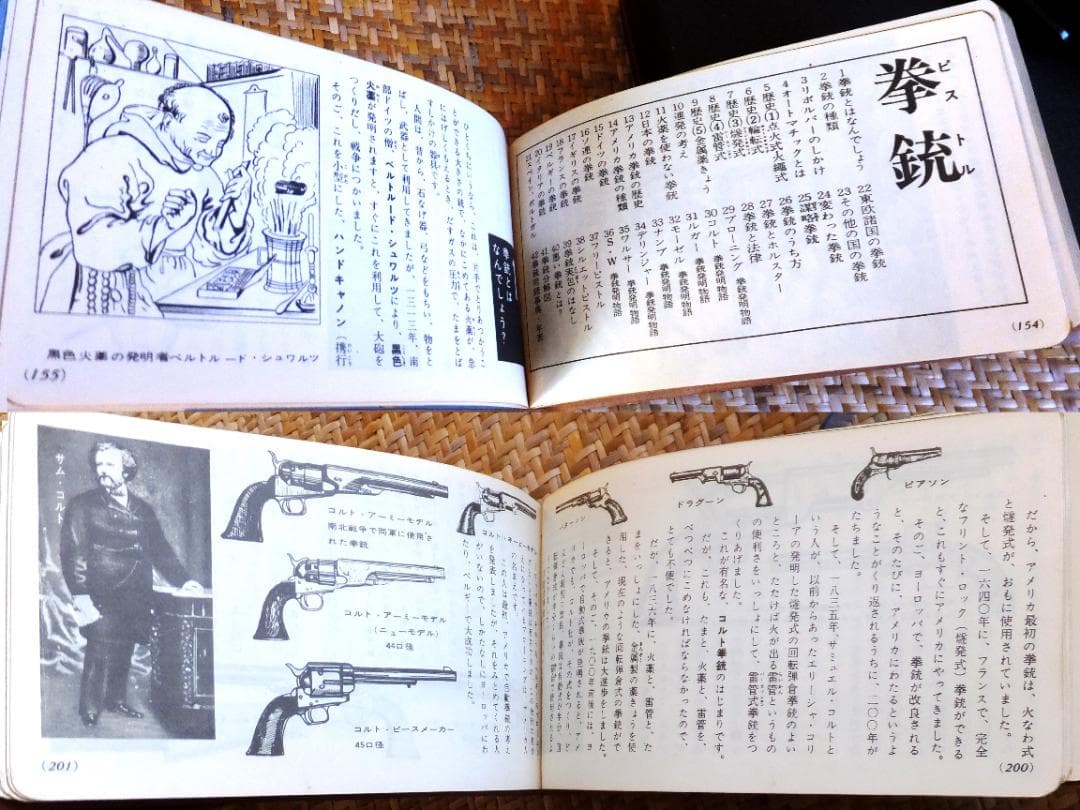 拳銃
ピストル
1 拳銃とはなんでしょう
2 拳銃の種類
3 リボルバーのしかけ
4 オートマチックとは
5 歴史(1)点火式火縄式
6 歴史(2)輪転式
7 歴史(3)燧発式
8 歴史(4)雷管式
9 歴史(5)金属薬きょう
10 連発の考え
11 火薬を使わない拳銃
12 日本の拳銃
13 アメリカ拳銃の歴史
14 アメリカ拳銃の種類
15 ドイツの拳銃
16 ソ連の拳銃
17 イギリスの拳銃
18 フランスの拳銃
19 ベルギーの拳銃
20 イタリアの拳銃
21 スペイン、ポルトガル
22 東欧諸国の拳銃
23 その他の国の拳銃
24 変わった拳銃
25 謀略拳銃
26 拳銃のうち方
27 拳銃とホルスター
28 拳銃と法律
29 ブローニング 拳銃発明物語
30 コルト 拳銃発明物語
31 ルガー 拳銃発明物語
32 モーゼル 拳銃発明物語
33 ナンブ 拳銃発明物語
34 デリンジャー 拳銃発明物語
35 ワルサー 拳銃発明物語
36 S・W 拳銃発明物語
37 フリーピストル
38 シルエットピストル
39 拳銃実包のはなし
40 悪い拳銃とは?
41 拳銃分解図
(154)
拳銃とは
なんでしょう?
ひとくちにいうなら、これは、片手でとりあつかうこ
とができる大きさの銃で、なかにつめてある火薬が、急
にはげしくもえるとき、だすガスの圧力で、たまをとば
すしかけの器具です。
人間は、昔から、石なげ器、弓などをもちい、物をと
ばし、武器として利用してきましたが、一三一三年、南
部ドイツの僧、ベルトルード・シュワルツにより、黒色
火薬が発明されますと、すぐにこれを利用して、大砲を
つくりだし、戦争につかいました。
その二、これを小型にした、ハンドキャノン(携行
黒色火薬の発明者ベルトルード・シュワルツ
(155)
ピアソン
ドラグーン
パターソン
だから、アメリカ最初の拳銃は、火なわ式
と燧発式が、おもに使用されていました。
そして、一六四〇年に、フランスで、完全
なフリント・ロック(燧発式)拳銃ができる
と、これもすぐにアメリカにやってきました。
その二、ヨーロッパで、拳銃が改良される
と、そのたびに、アメリカにわたるというよ
うなことがくり返されるうちに、二〇〇年が
たちました。
そして、一八三五年、サミュエル・コルト
いう人が、以前からあったエリーシャ・コリ
ーアの発明した燧発式の回転弾倉拳銃のよい
ところと、たたけば火が出る雷管というもの
の便利さをいっしょにして、雷管式拳銃をつ
くりあげました。
これが有名な、コルト拳銃のはじまりです。
だが、これも、たまと、火薬と、雷管を、
べつべつにこめなければならなかったので、
とても不便でした。
だが、一八六年に、火薬と、雷管と、た
まをいっしょにした、金属製の薬きょうを使
用した、現在のような回転弾倉式の拳銃がで
きると、アメリカの拳銃は大進歩をしました。
そして、その二、一九〇〇年前後には、ヨ
(200)
コルト・ネービーモデル
コルト・アーミーモデル
南北戦争で両軍に使用さ
れた拳銃
コルト・アーミーモデル
(ニューモデル)
44口径
コルト・ピースメーカー
45口径
サム・コルト
(201)